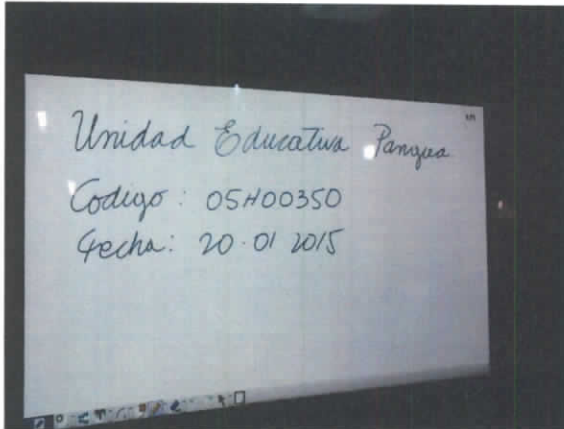 Unidad Educativa Pangua
Codigo: 05H00350
Fecha: 20.01 2015